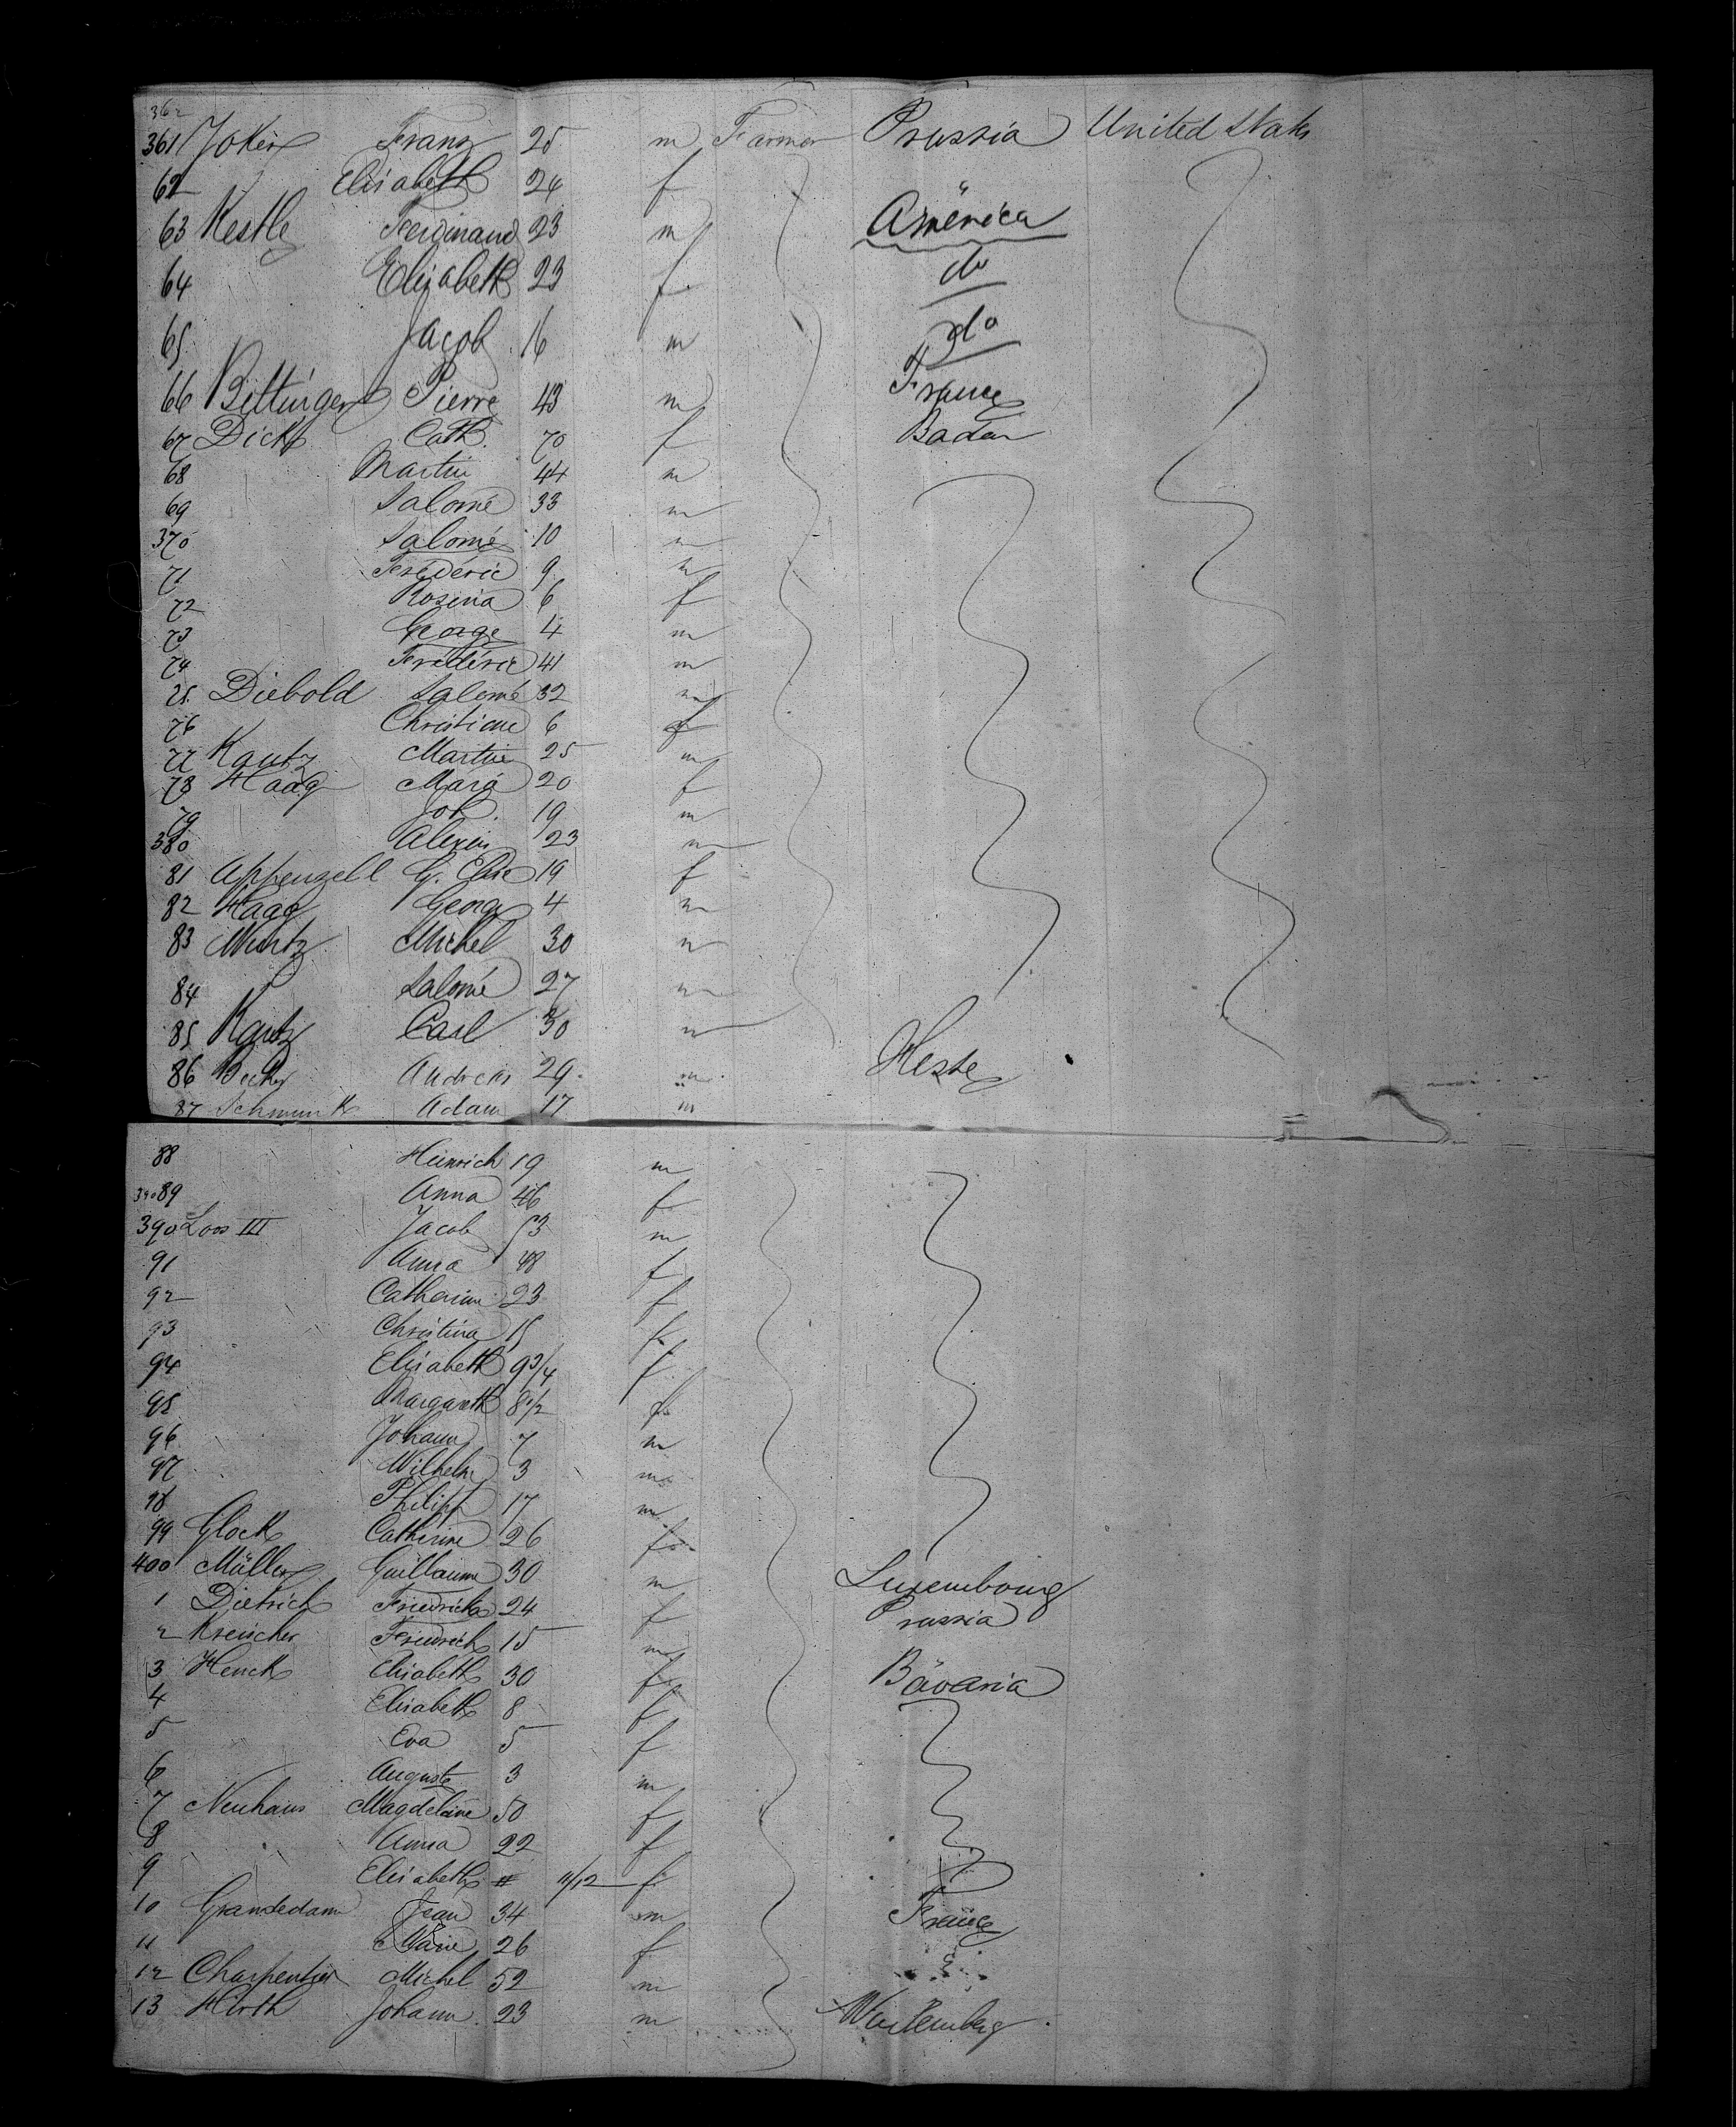 362
361 Joker Franz 25 m Farmer Prussia United States
62 Elisabeth 24 f
63 Kestle Ferdinand 23 m America
64 Elisabeth 23 f do
65 Jacob 16 m do
66 Bittinger Pierre 43 m France
67 Dick Cath. 70 f Baden
68 Martin 44 m
69 Salomé 33 m
370 Salomé 10 m
71 Frédéric 9 m
72 Rosina 6 f
73 George 4 m
74 Frédéric 41 m
75 Diebold Salomé 32 m
76 Christiane 6 f
77 Kautz Martin 25 m
78 Haag Mara 20 f
79 Joh. 19 m
380 Alexis 23 m
81 Appenzell G. Elise 19 f
82 Haag George 4 m
83 Wurtz Michel 30 m
84 Salomé 27 m
85 Kautz Carl 30 m
86 Becker Andreas 29 m Hesse
87 Schmunk Adam 17 m
88 Heinrich 19 m
89 Anna 46 f
390 Loos III Jacob 53 m
91 Anna 48 f
92 Catherine 23 f
93 Christina 15 f
94 Elisabeth 9 3/4 f
95 Margareth 8 1/2 f
96 Johann 7 m
97 Wilhelm 3 m
98 Philipp 17 m
99 Glock Catherine 26 f
400 Müller Guillaume 30 m Luxembourg
1 Dietrich Friedricka 24 f Prussia
2 Kreischer Friedrich 15 m
3 Henck Elisabeth 30 f Bavaria
4 Elisabeth 8 f
5 Eva 5 f
6 Auguste 3 m
7 Neuhaus Magdelaine 50 f
8 Anna 22 f
9 Elisabeth 11/12 f
10 Grandedam Jean 34 m France
11 Marie 26 f
12 Charpentier Michel 52 m
13 Hirth Johann 23 m Wurtemberg